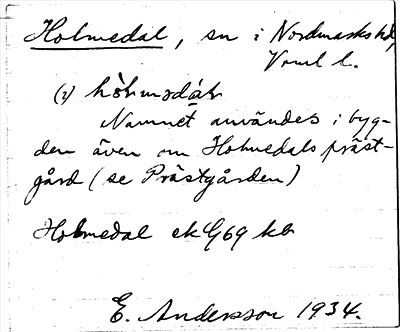 Holmedal, sn i Nordmarks hd,
Vrml l.
(i)
Namnet användes i byg-
den även om Holmedals präst-
gård (se Prästgården)
Holmedal ek G69 kb
E. Andersson 1934.